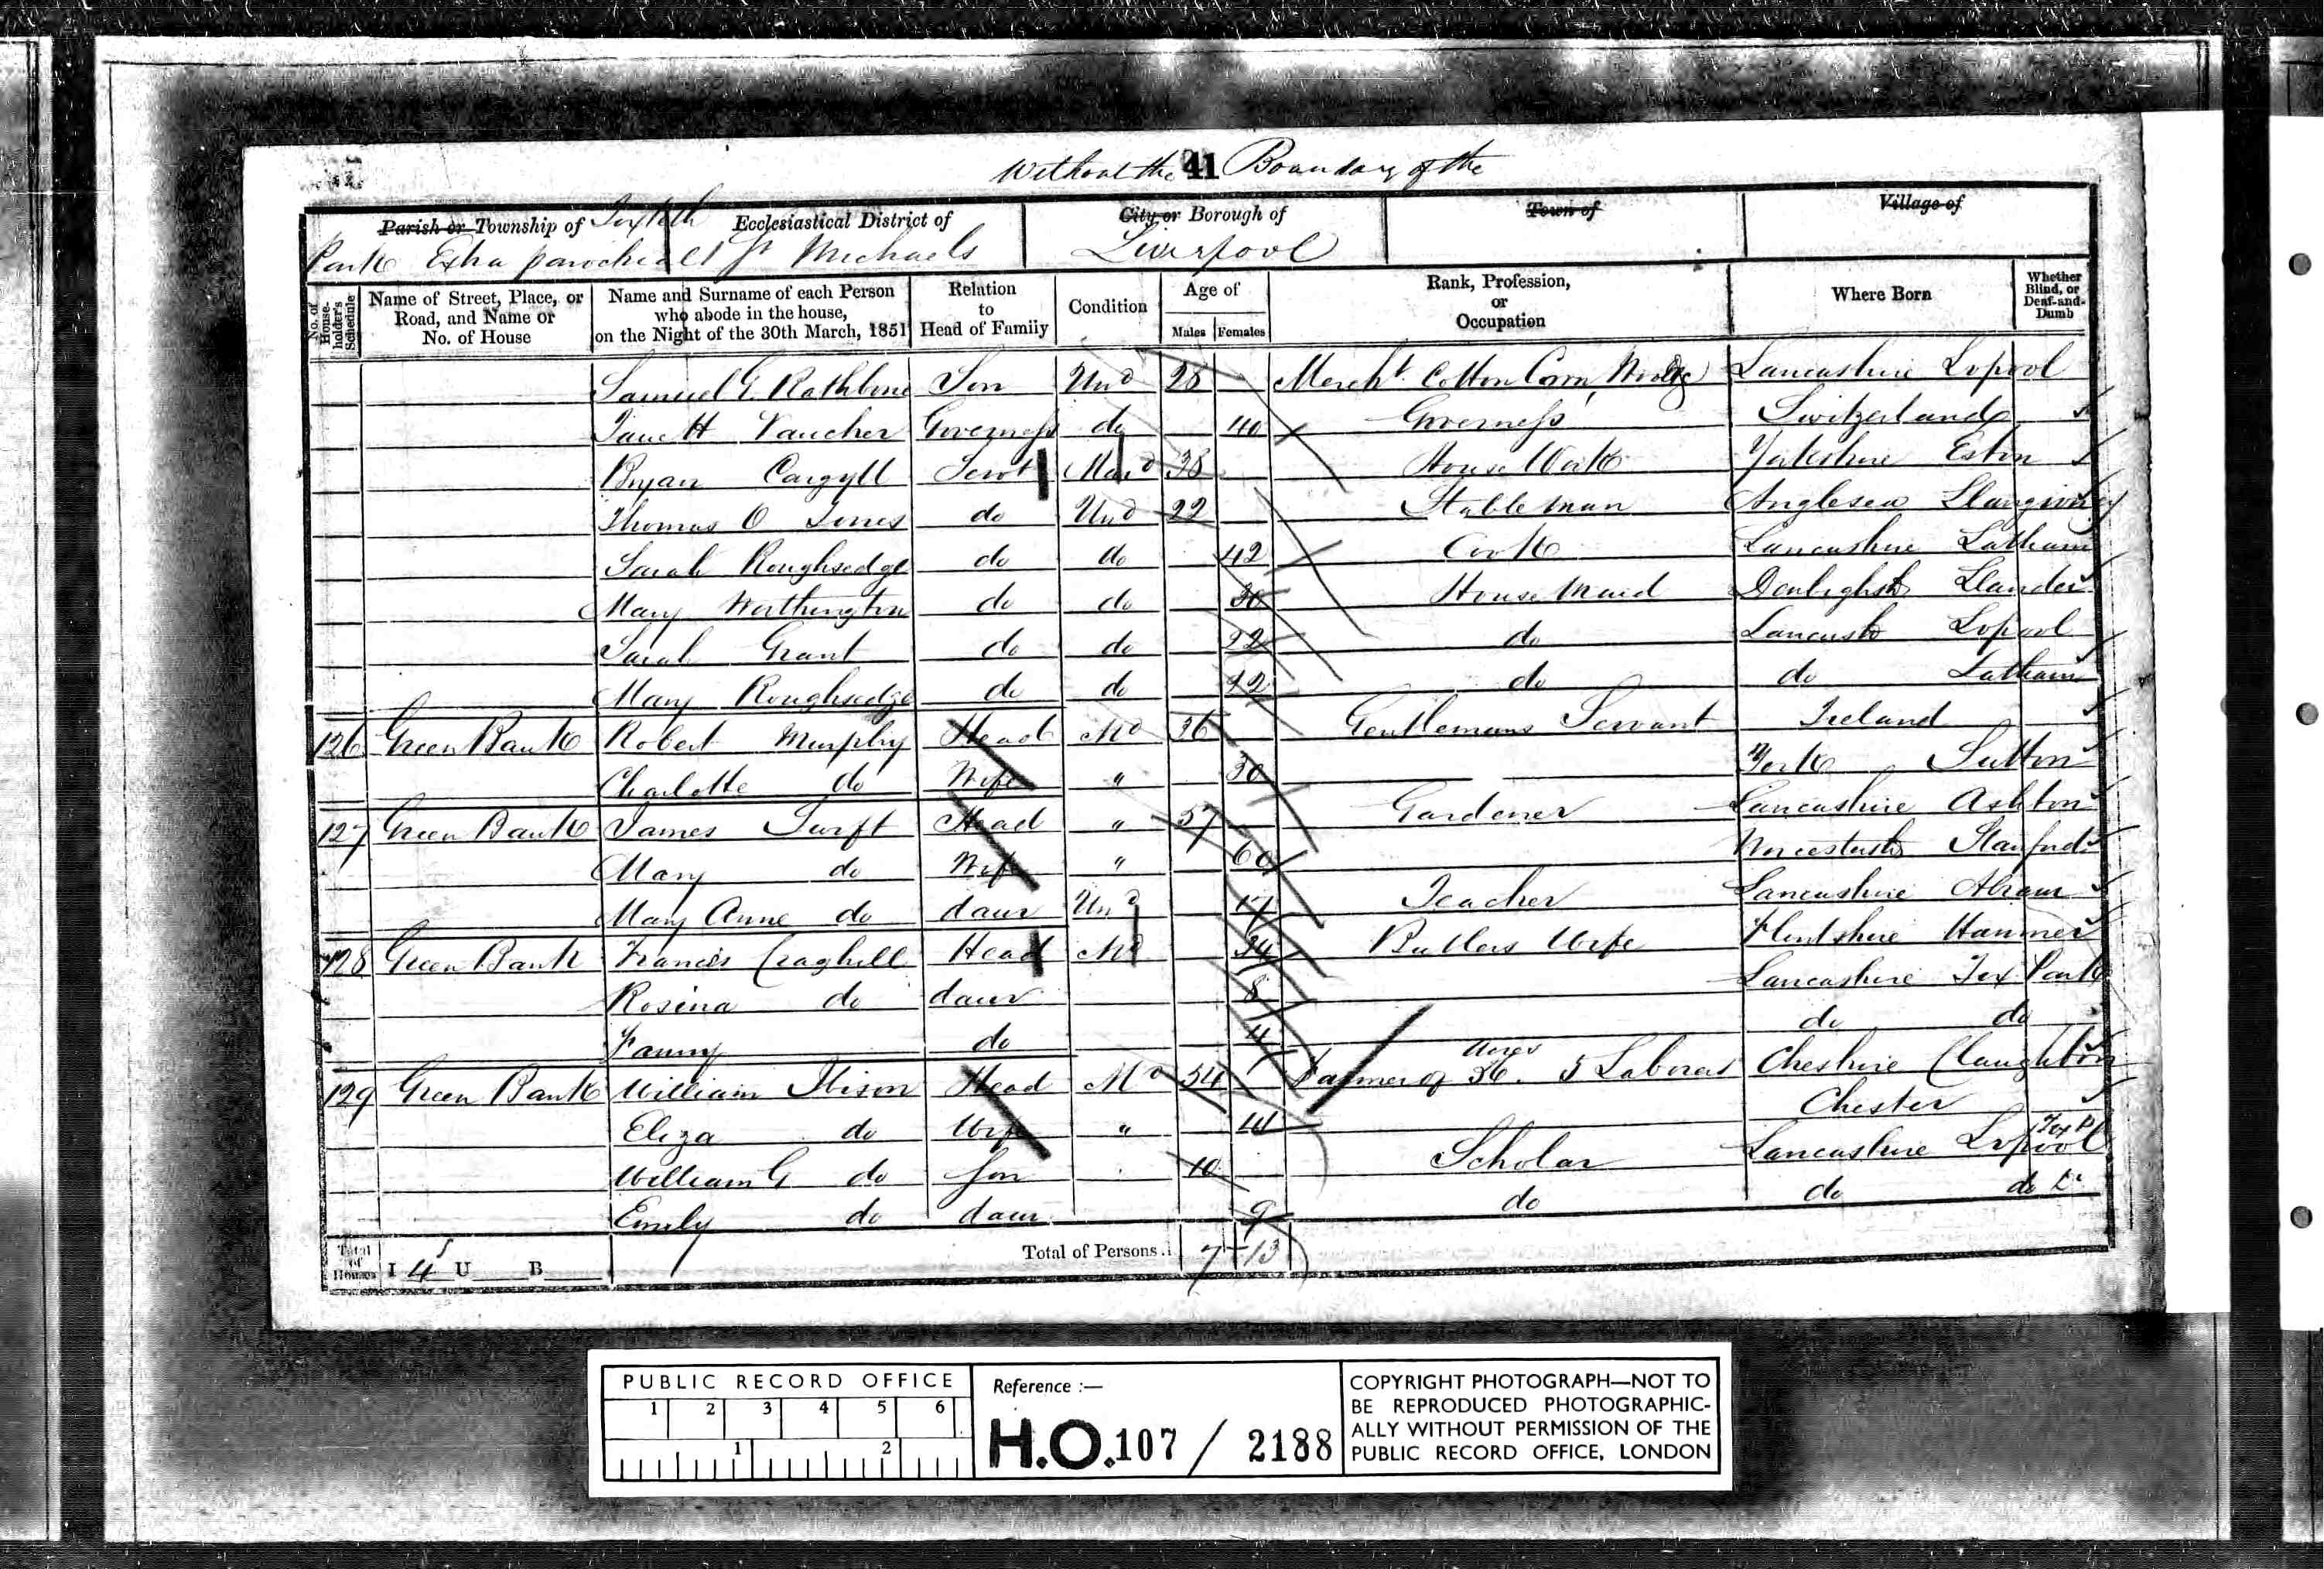 Without the 41 Boundary of the
Parish or Township of Toxteth
Park Extra parochial
Ecclesiastical District of
St Michaels
City or Borough of
Liverpool
Town of
Village of
No. of House-holder's Schedule
Name of Street, Place, or Road, and Name or No. of House
Name and Surname of each Person who abode in the house, on the Night of the 30th March, 1851
Relation to Head of Family
Condition
Age of
Males Females
Rank, Profession, or Occupation
Where Born
Whether Blind, or Deaf-and-Dumb
Samuel G. Rathbone Son Und 28 Mercht Cotton Corn Lancashire Lvpool
Vaucher Governess do 40 Governess Switzerland
Bryan Cargyll Servt Mard 38 House Work Yorkshire Eston
Thomas O Jones do Und 22 Stableman Anglesea
Sarah Roughsedge do do 42 Cook Lancashire Latham
Mary Worthington do do 30 House Maid
Sarah Grant do do 22 do Lancash Lvpool
Mary Roughsedge do do 22 do do Latham
126 Green Bank Robert Murphy Head Md 36 Gentlemans Servant Ireland
Charlotte do Wife " 30 York Sutton
127 Green Bank James Swift Head " 57 Gardener Lancashire Ashton
Mary do Wife " 60 Stanford
Mary Anne do daur Und 17 Teacher Lancashire Abram
128 Green Bank Francis Craghill Head Md 34 Butlers Wife Flintshire Hanmer
Rosina do daur 8 Lancashire Tox Park
Fanny do 4 do do
129 Green Bank William Ibison Head Md 54 Farmer of 36 Acres 5 Laborers Cheshire Claughton
Eliza do Wife " Chester
William G do Son 10 Scholar Lancashire Lvpool Tox P
Emily do daur 9 do do do
Total of Houses I 4 U B
Total of Persons 7 13
PUBLIC RECORD OFFICE
1 2 3 4 5 6
1 2
Reference :—
H.O. 107 / 2188
COPYRIGHT PHOTOGRAPH—NOT TO
BE REPRODUCED PHOTOGRAPHIC-
ALLY WITHOUT PERMISSION OF THE
PUBLIC RECORD OFFICE, LONDON